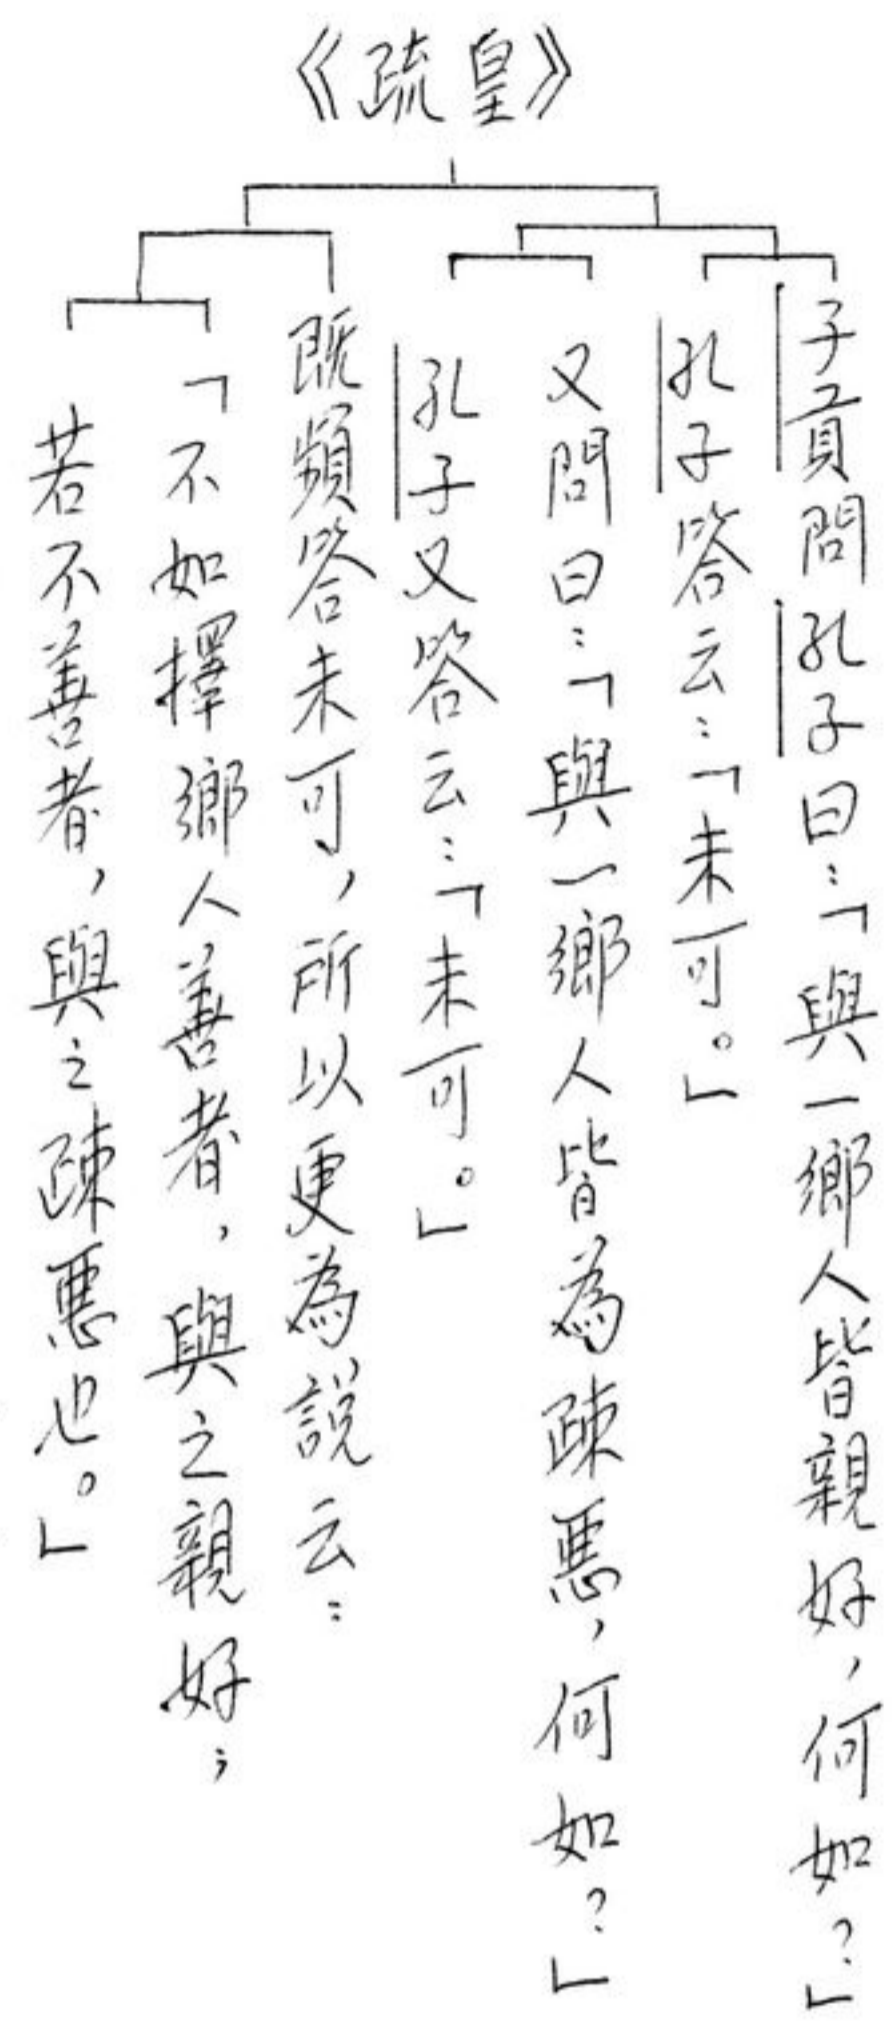 《皇疏》
子貢問孔子曰：「與一鄉人皆親好，何如？」
孔子答云：「未可。」
又問曰：「與一鄉人皆為疎惡，何如？」
孔子又答云：「未可。」
既頻答未可，所以更為說云：
「不如擇鄉人善者，與之親好；
若不善者，與之疎惡也。」